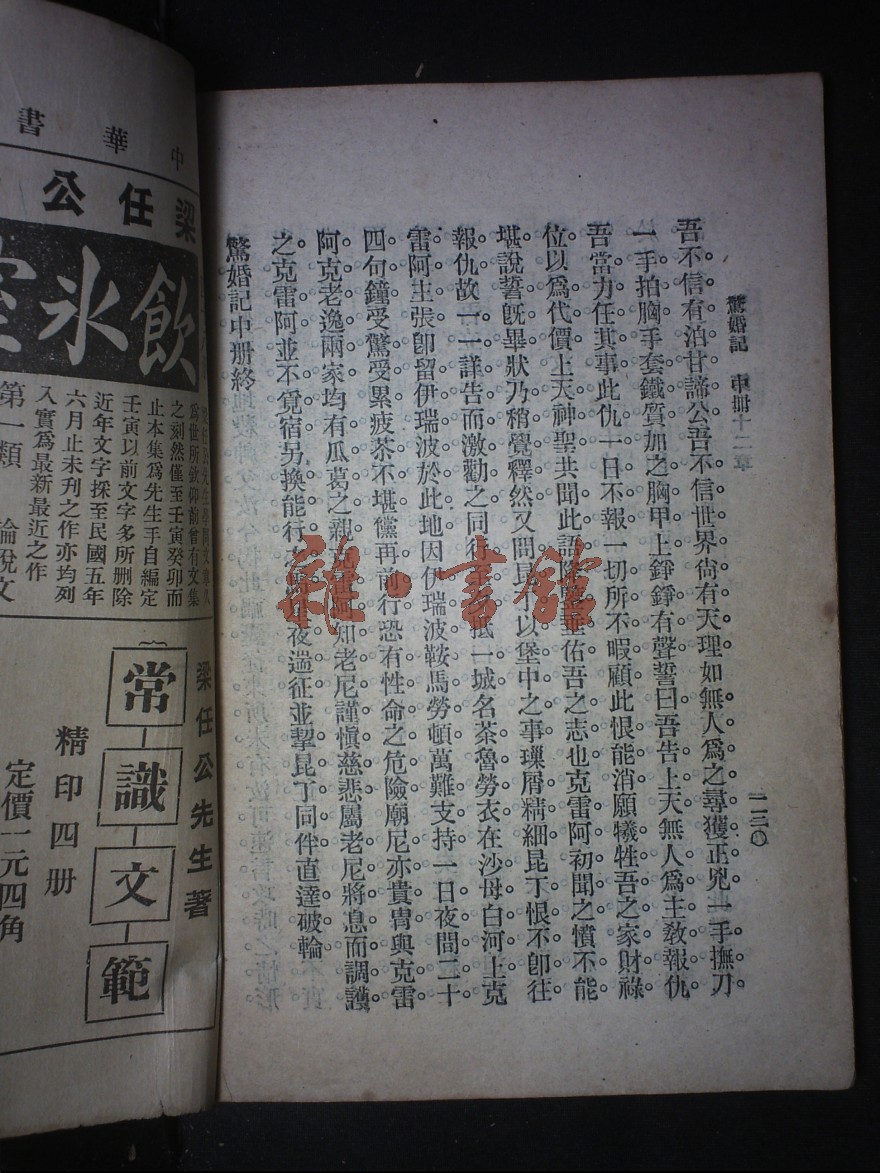 驚婚記 中冊十二章
一三〇
吾不信有泊甘諦公吾不信世界尙有天理如無人爲之尋獲正兇一手撫刀
一手拍胸手套鐵質加之胸甲上錚錚有聲誓曰吾告上天無人爲主敎報仇
吾當力任其事此仇一日不報一切所不暇顧此恨能消願犧牲吾之家財祿
位以爲代價上天神聖共聞此語陰 佑吾之志也克雷阿初聞之憤不能
堪說誓旣畢狀乃稍覺釋然又問昆丁以堡中之事瑣屑精細昆丁恨不卽往
報仇故一一詳告而激勸之同行至 抵一城名茶魯勞衣在沙母白河上克
雷阿主張卽留伊瑞波於此地因伊瑞波鞍馬勞頓萬難支持一日夜間二十
四句鐘受驚受累疲茶不堪儻再前行恐有性命之危險廟尼亦貴冑與克雷
阿克老逸兩家均有瓜葛之親克雷阿知老尼謹愼慈悲屬老尼將息而調護
之克雷阿並不覓宿另換能行之 夜遄征並挈昆丁同伴直達破輪
驚婚記中册終
中華書
梁任公
飲氷室
爲世所欽仰前曾有文集
之刻然僅至壬寅癸卯而
止本集爲先生手自編定
壬寅以前文字多所删除
近年文字採至民國五年
六月止未刊之作亦均列
入實爲最新最近之作
第一類 論說文
梁任公先生著
常識文範
精印四册
定價一元四角